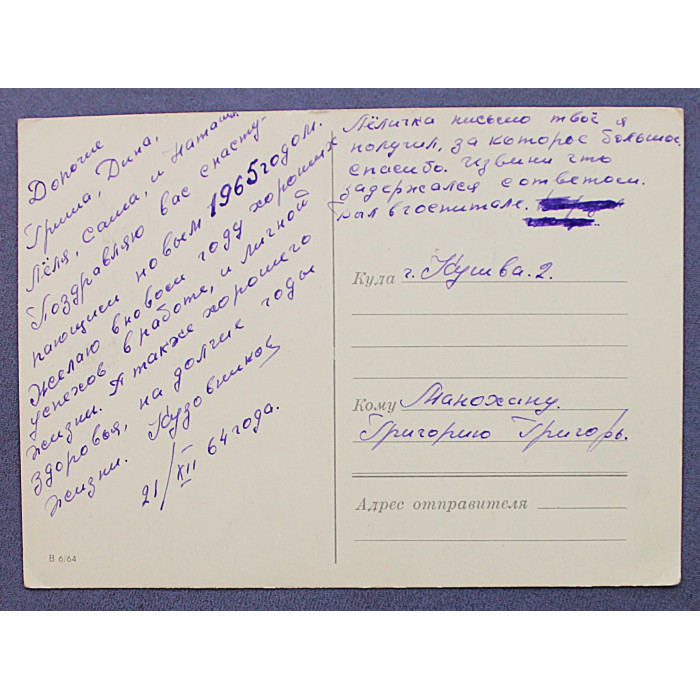 Дорогие
Гриша, Дина,
Лёля, Саша, и Наташа
Поздравляю вас снасту-
пающим новым 1965 годом.
Желаю вновом году хороших
успехов в работе, и личной
жизни. А также хорошего
здоровья, на долгие годы
жизни. Кузовников
21/XII 64 года.
В 6/64
Лёличка письмо твоё я
получил, за которое большое
спасибо. Извини что
задержался с ответом.
был в госпитале.
Куда г. Кушва. 2.
Кому Манохину.
Григорию Григорь.
Адрес отправителя